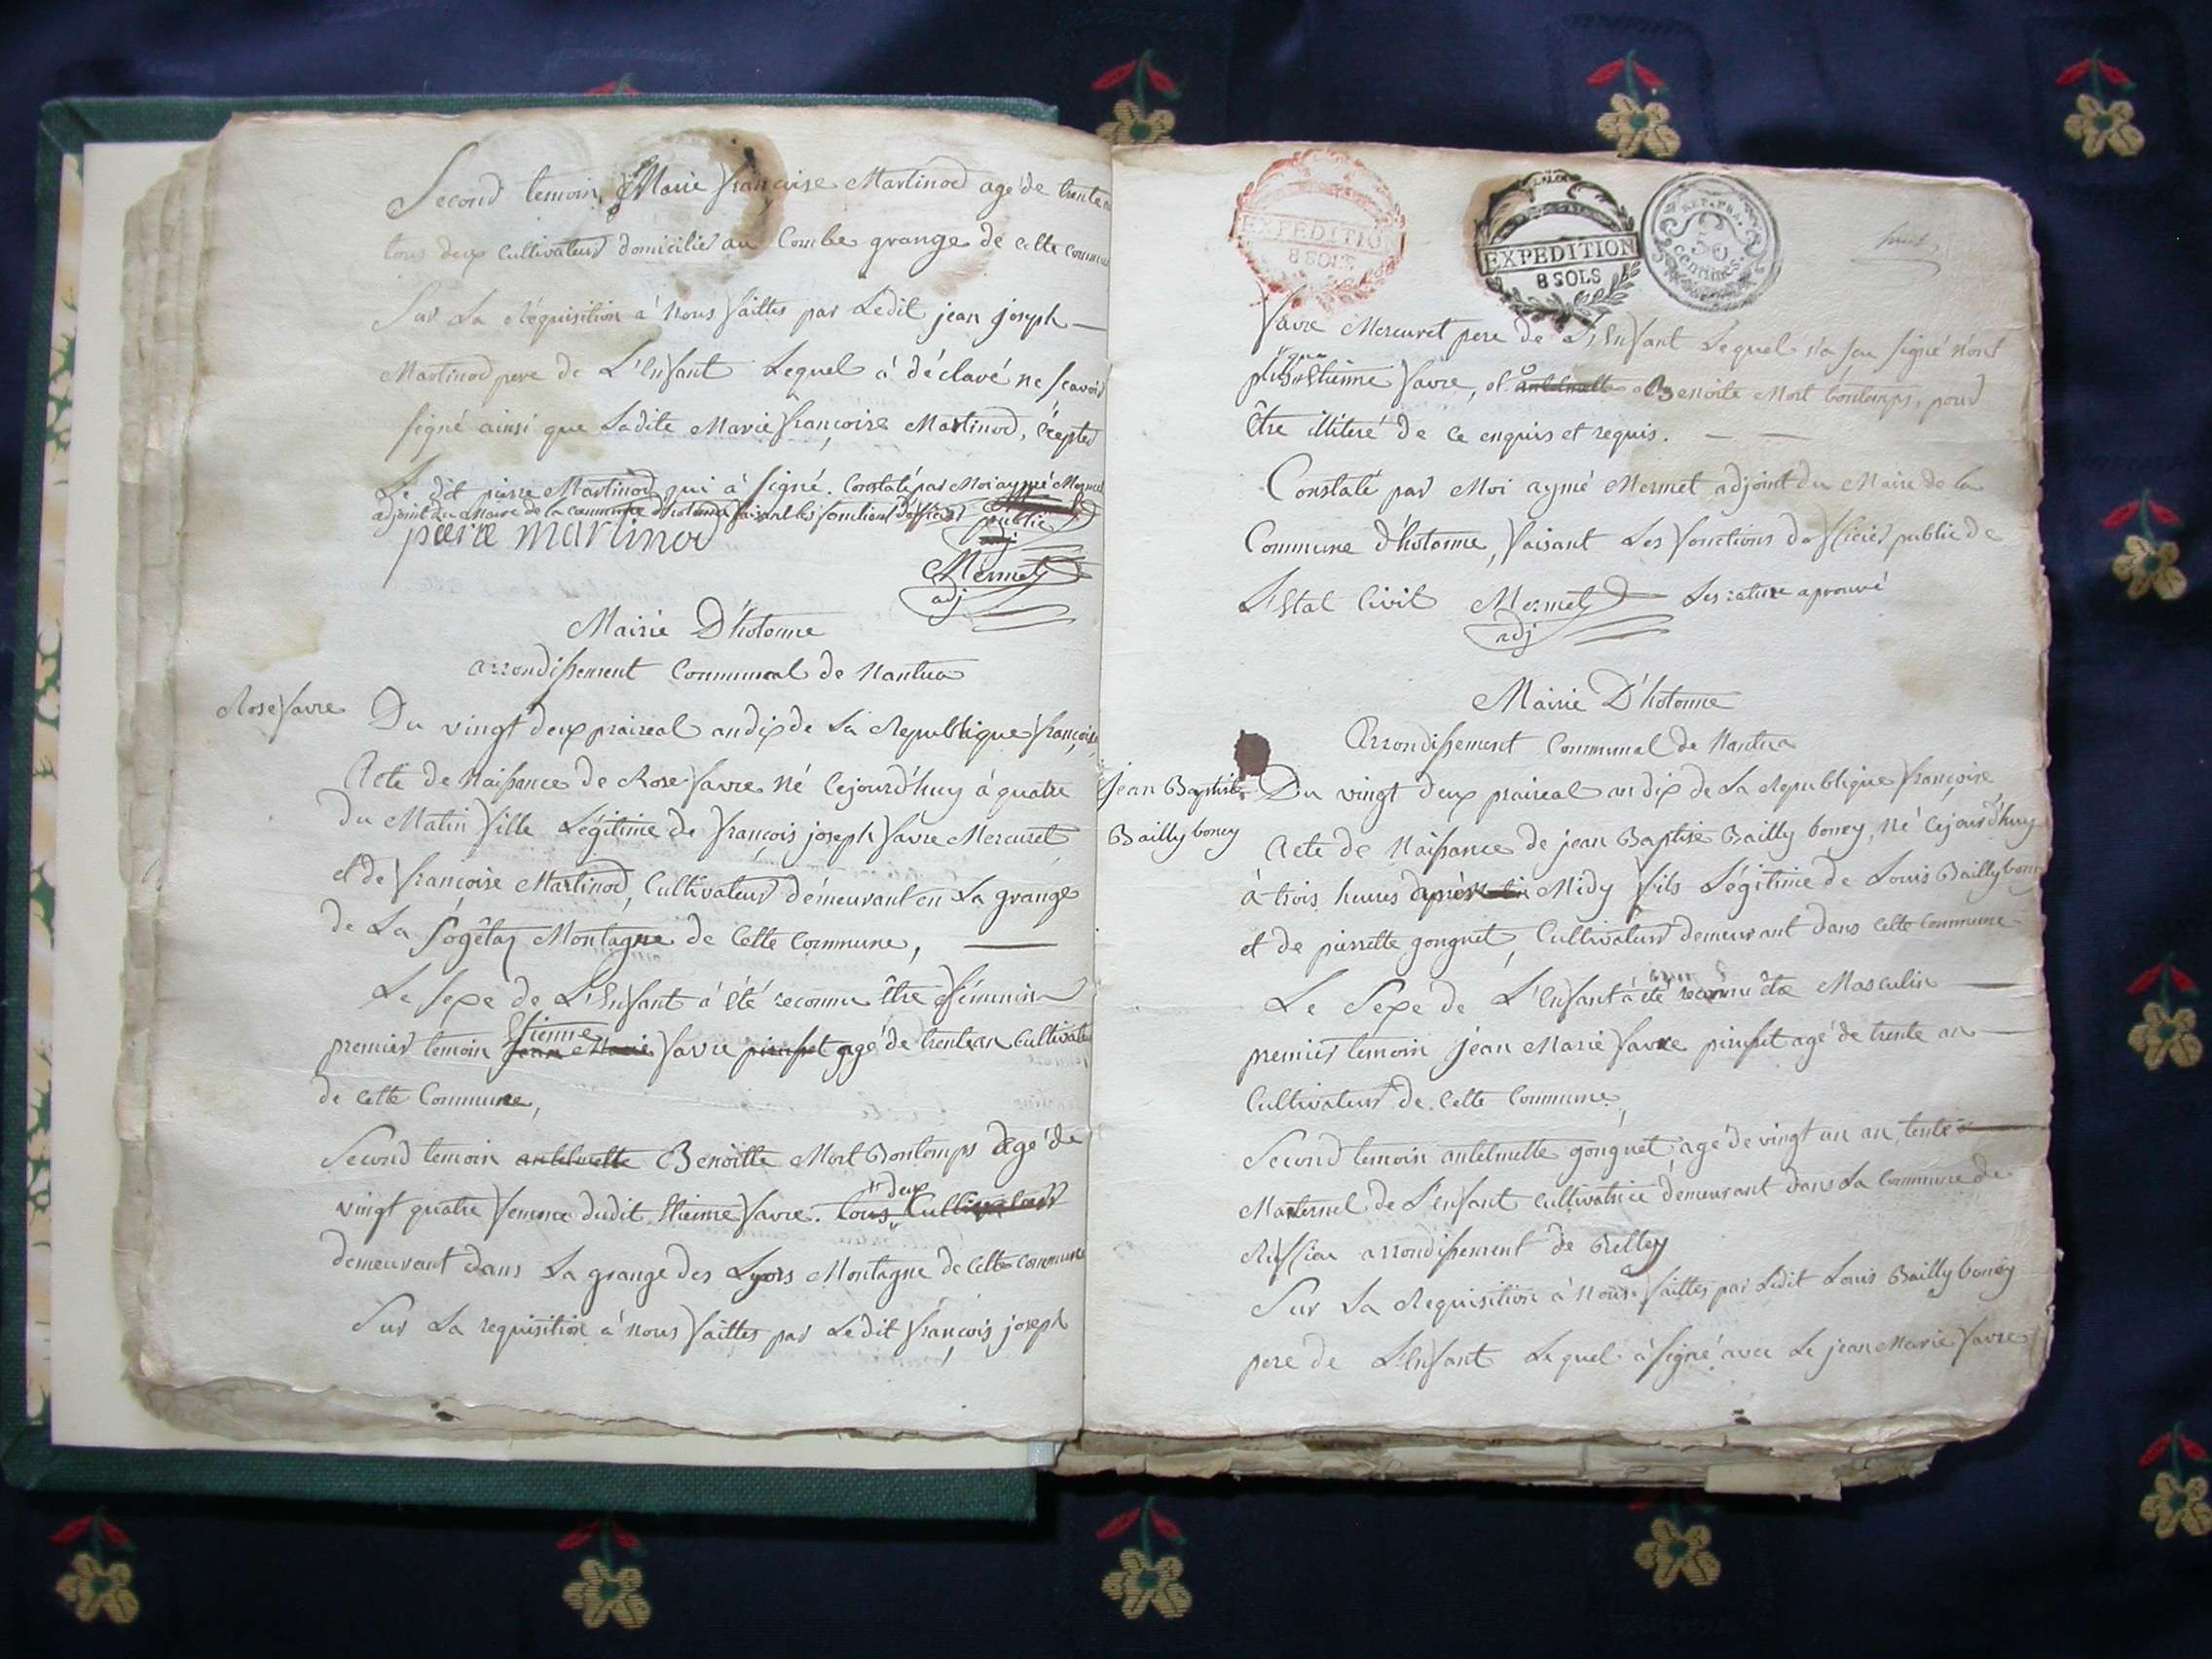 Second temoin, Marie françoise Martinod agé de trente
tous deux Cultivateurs domicilié au Combe grange de cette commune
Sur La Réquisition à Nous faittes par Ledit jean joseph
Martinod pere de L'Enfant Lequel à déclaré ne scavoir
signé ainsi que Ladite Marie françoise Martinod, éxepter
Le dit pierre Martinod qui à signé. Constaté par Moi aymé Mermet
adjoint du Maire de la commune d'hotonne faisant les fonctions d'officier
public
pierre martinod
adj
Mermet
adj
Mairie D'hotonne
arrondissement Communal de Nantua
Rose favre
Du vingt deux praireal an dix de La Republique françoise
Acte de Naissance de Rose favre Né Cejourd'huy à quatre
du Matin fille Légitime de françois joseph favre Mercuret
et de françoise Martinod, Cultivateurs démeurant en La grange
de La Montagne de Cette Commune,
Le sexe de L'Enfant à été reconnu être féminin
Etienne
premier temoin jean Marie favre pirasset agé de trente an Cultivateur
de Cette Commune,
Second temoin antelmette Benoitte Mort Bontemps agé de
deux
vingt quatre femme dudit Etienne favre. tous Cultivateurs
demeurant dans La grange des Lyors Montagne de Cette Commune
Sur La requisition à nous faittes par Ledit françois joseph
EXPEDITION
8 SOLS
EXPEDITION
8 SOLS
REP. FRA.
50
CENTIMES
huit
favre Mercuret pere de L'Enfant Lequel n'a seu signé n'ont
plus Etienne favre, et antelmette Benoite Mort bontemps, pour
être illiteré de ce enquis et requis.
Constaté par Moi aymé Mermet adjoint du Maire de la
Commune d'hotonne, faisant Les fonctions d'officier public de
L'Etat Civil Mermet Les rature aprouvé
adj
Mairie D'hotonne
Arrondissement Communal de Nantua
jean Baptiste
Bailly boney
Du vingt deux praireal an dix de La Republique françoise
Acte de Naissance de jean Baptise Bailly boney, né Cejourd'huy
à trois heures après Midy fils Légitime de Louis Bailly boney
et de pierrette gonguet, Cultivateurs demeurant dans Cette Commune
Le Sexe de L'Enfant à été reconnu être Masculin
premier temoin jean Marie favre pirasset agé de trente an
Cultivateur de Cette Commune,
Second temoin antelmette gonguet agé de vingt un an, tente
Maternel de L'enfant Cultivatrice demeurant dans La Commune de
Ruffieu arrondissement de Belley
Sur La Requisition à Nous faittes par Ledit Louis Bailly boney
pere de L'Enfant Lequel à signé avec Le jean Marie favre